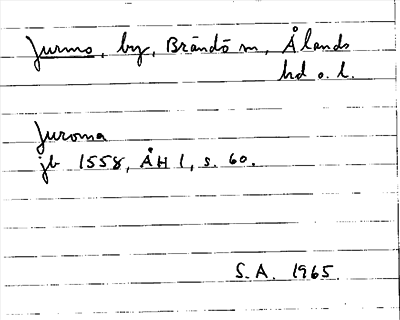 Jurmo, by, Brändö sn, Ålands
hd o. l.
Juroma
jb 1558, ÅH 1, s. 60.
S.A. 1965.